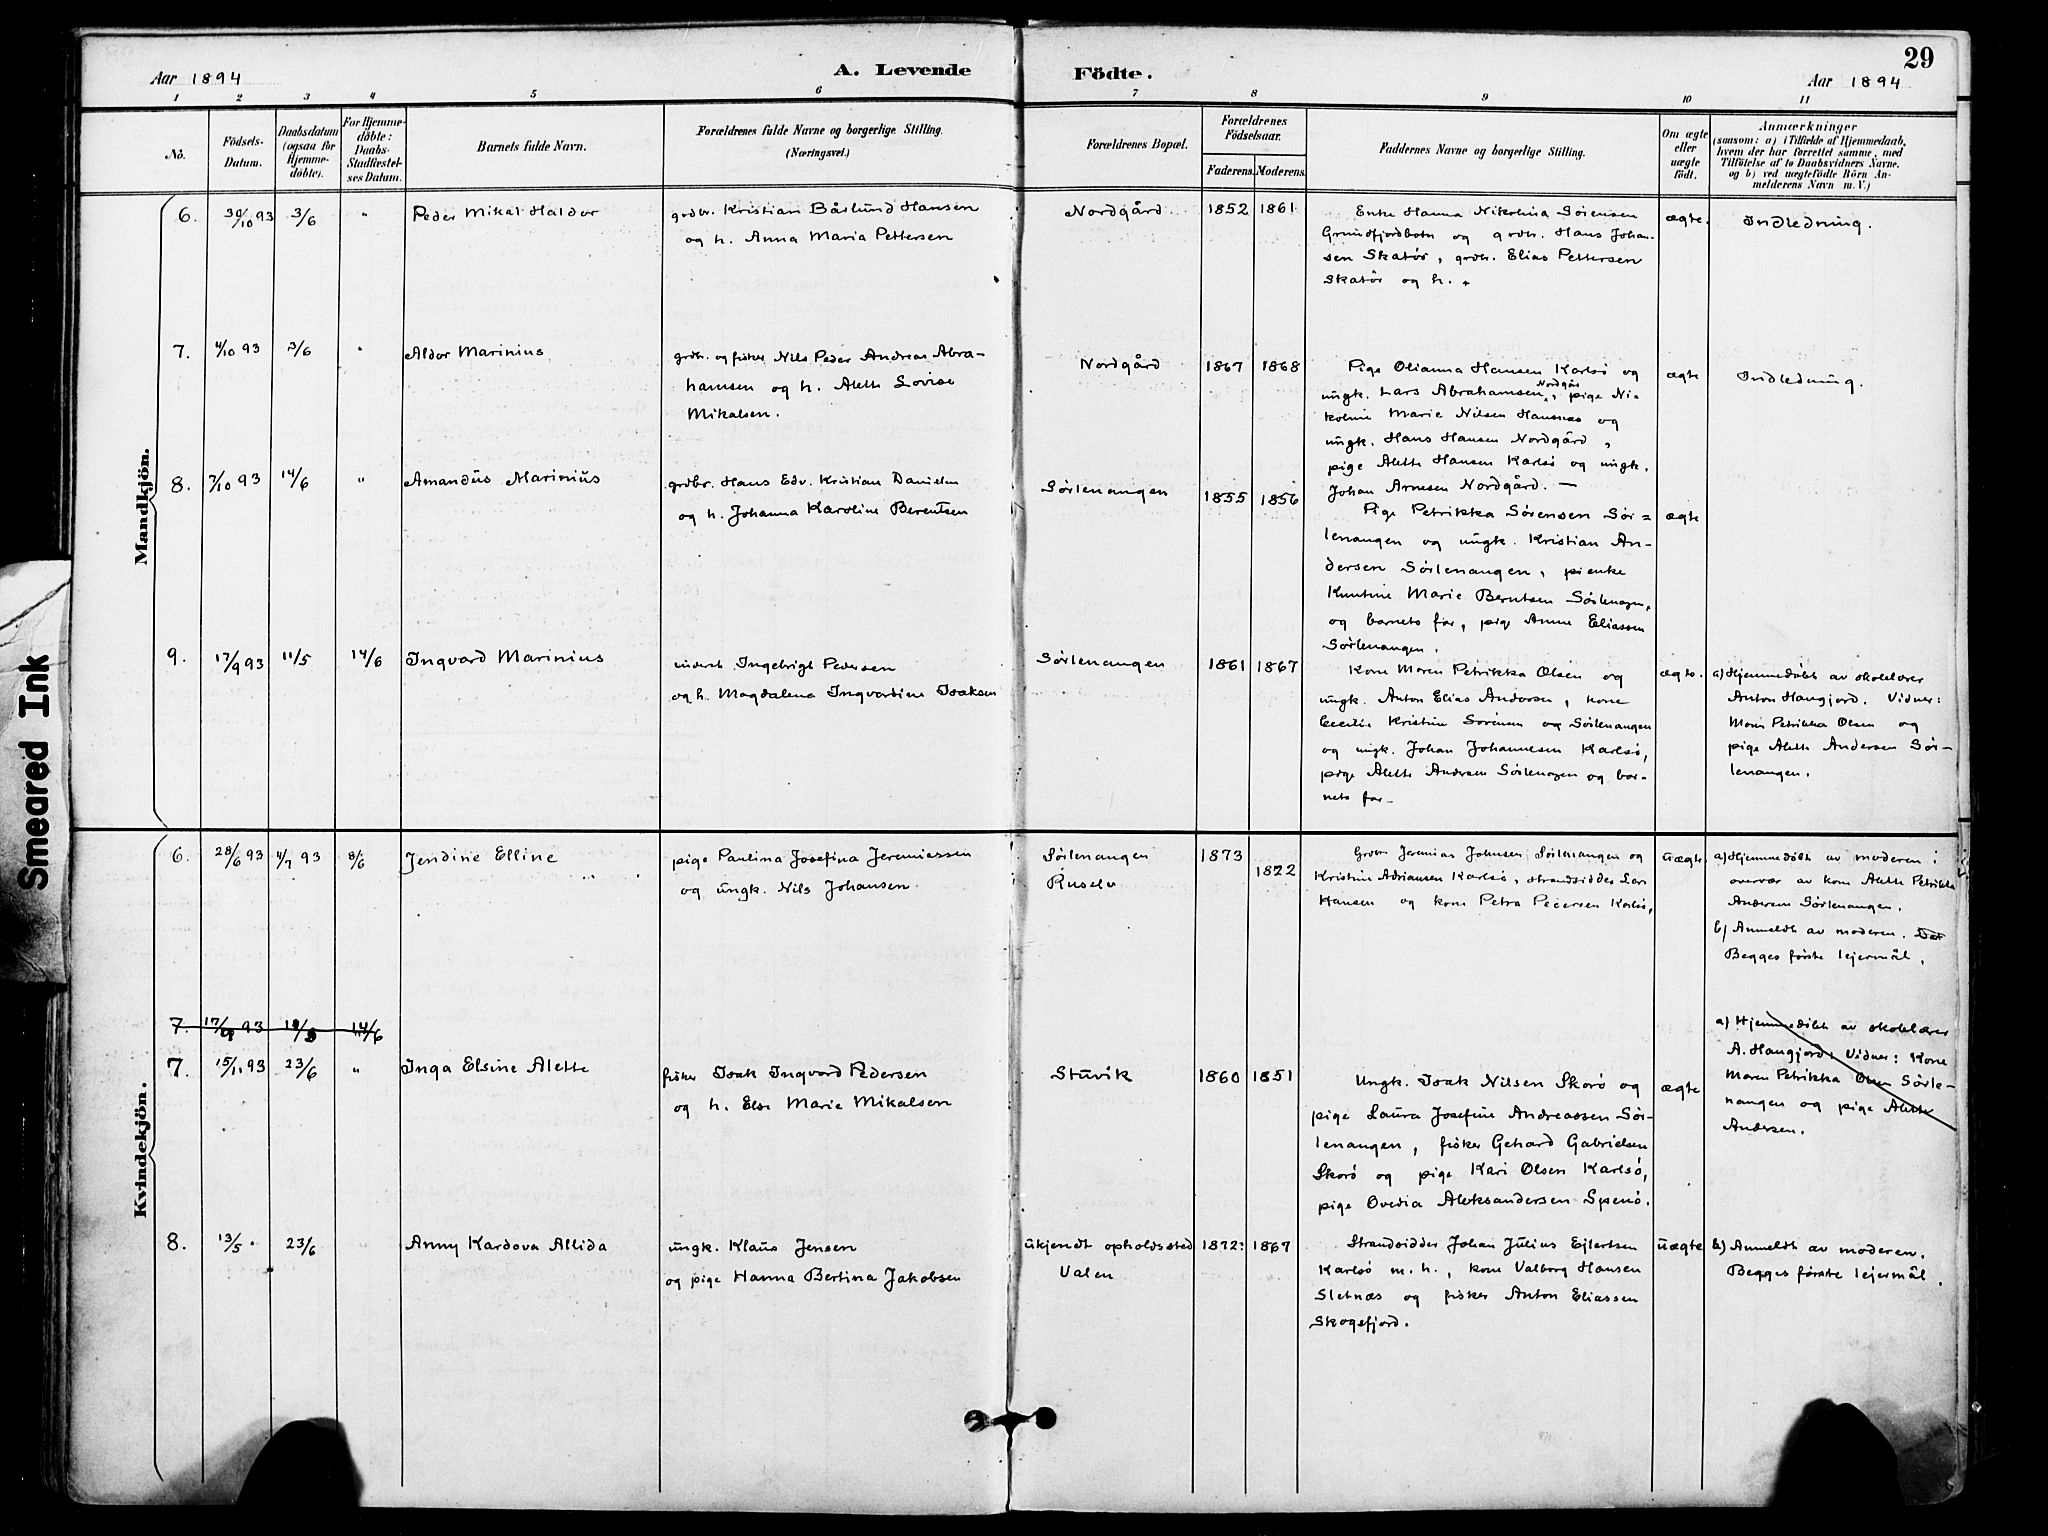 29
Aar 1894
A. Levende Födte.
Aar 1894
1 2 3 4 5 6 7 8 9 10 11
No.
Födsels-
Datum.
Daabsdatum
(ogsaa for
Hjemme-
döbte).
For Hjemme-
döbte:
Daabs-
Stadfæstel-
ses Datum.
Barnets fulde Navn.
Forældrenes fulde Navne og borgerlige Stilling.
(Næringsvei.)
Forældrenes Bopæl.
Forældrenes
Födselsaar.
Faderens. Moderens.
Faddernes Navne og borgerlige Stilling.
Om ægte
eller
uægte
födt.
Anmærkninger
(saasom: a) i Tilfælde af Hjemmedaab,
hvem der har forrettet samme, med
Tilföielse af to Daabsvidners Navne.
og b) ved uægtefödte Börn An-
melderens Navn m. V.)
Mandkjön.
6. 30/10 93 3/6 " Peder Mikal Haldor
grdbr. Kristian Bårlund Hansen
og h. Anna Maria Pettersen
Nordgård 1852 1861
Enke Hanna Nikolina Sørensen
Grundfjordbotn og grdbr. Hans Johan-
sen Skatør, grdbr. Elias Pettersen
Skatør og h.
ægte. Indledning.
7. 4/10 93 3/6 " Aldor Marinius
grdbr. og fisker Nils Peder Andreas Abra-
hamsen og h. Alette Lovise
Mikalsen.
Nordgård 1867 1868
Pige Olianna Hansen Karlsø og
ungk. Lars Abrahamsen Nordgår, pige Ni-
koline Marie Nilsen Hansnes og
ungk. Hans Hansen Nordgård,
pige Alette Hansen Karlsø og ungk.
Johan Arnesen Nordgård. —
ægte Indledning.
8. 7/10 93 14/6 " Amandus Marinius
grdbr. Hans Edv. Kristian Danielsen
og h. Johanna Karoline Berentsen
Sörlenangen 1855 1856
Pige Petrikka Sørensen Sør=
lenangen og ungk. Kristian An-
dersen Sørlenangen, pienke
Marie Berntsen Sørlenagn,
og barnets far, pige Anne Eliassen
Sørlenangen.
ægte
9. 17/9 93 11/5 14/6 Ingvard Marinius
inderst Ingebrigt Pedersen
og h. Magdalena Ingvardine Isaksen
Sörlenangen 1861 1867
Kone Maren Petrikka Olsen og
ungk. Anton Elias Andersen, kone
Cecilie Kristine Sørensen og Sörlenangen
og ungk. Johan Johannesen Karlsø,
pige Alette Andersen Sörlenagen og bar-
nets far—
ægte.
a) Hjemmedøbt av skolelærer
Anton Hangjord. Vidner:
Maren Petrikka Olsen og
pige Alette Andersen Sør-
lenangen.
Kvindekjön.
6. 28/6 93 4/7 93 8/6 Jendine Elline
pige Paulina Josefina Jeremiassen
og ungk. Nils Johansen
Sörlenangen
Ruselv
1873
1872
Jeremias Johnsen Sörlenangen og
Kristine Adriansen Karlsø, strandsidder Lars
Hansen og kone Petra Pedersen Karlsø,
uægte
a) Hjemmedøbt av moderen i
overvær av kone Alette Petrikka
Andersen Sørlenangen.
b) Anmeldt av moderen. Det
Begges første lejermål.
7. 17/9 93 14/6
a) Hjemmedøbt av skolelærer
A. Hangjord: Vidner: Kone
Maren Petrikka Olsen Sörle-
nangen og pige Alette
Andersen.
7. 15/11 93 23/6 " Inga Elsine Alette
fisker Isak Ingvard Pedersen
og h. Else Marie Mikalsen
Stuvik 1860 1851
Ungk. Isak Nilsen Skorø og
pige Laura Josefine Andreassen Sør-
lenangen, fisker Gehard Gabrielsen
Skorø og pige Kari Olsen Karlsø,
pige Ovedia Aleksandersen Spenø.
ægte
8. 13/5 " 23/6 " Anny Kardova Allida
ungk. Klaus Jensen
og pige Hanna Bertina Jakobsen
ukjendt opholdssted
Valen
1872: 1867
Strandsidder Johan Julius Ejlertsen
Karlsø m. h., kone Valborg Hansen
Sletnæs og fisker Anton Eliassen
Skogsfjord.
uægte
b) Anmeldt av moderen.
Begges første lejermål.
Smeared Ink